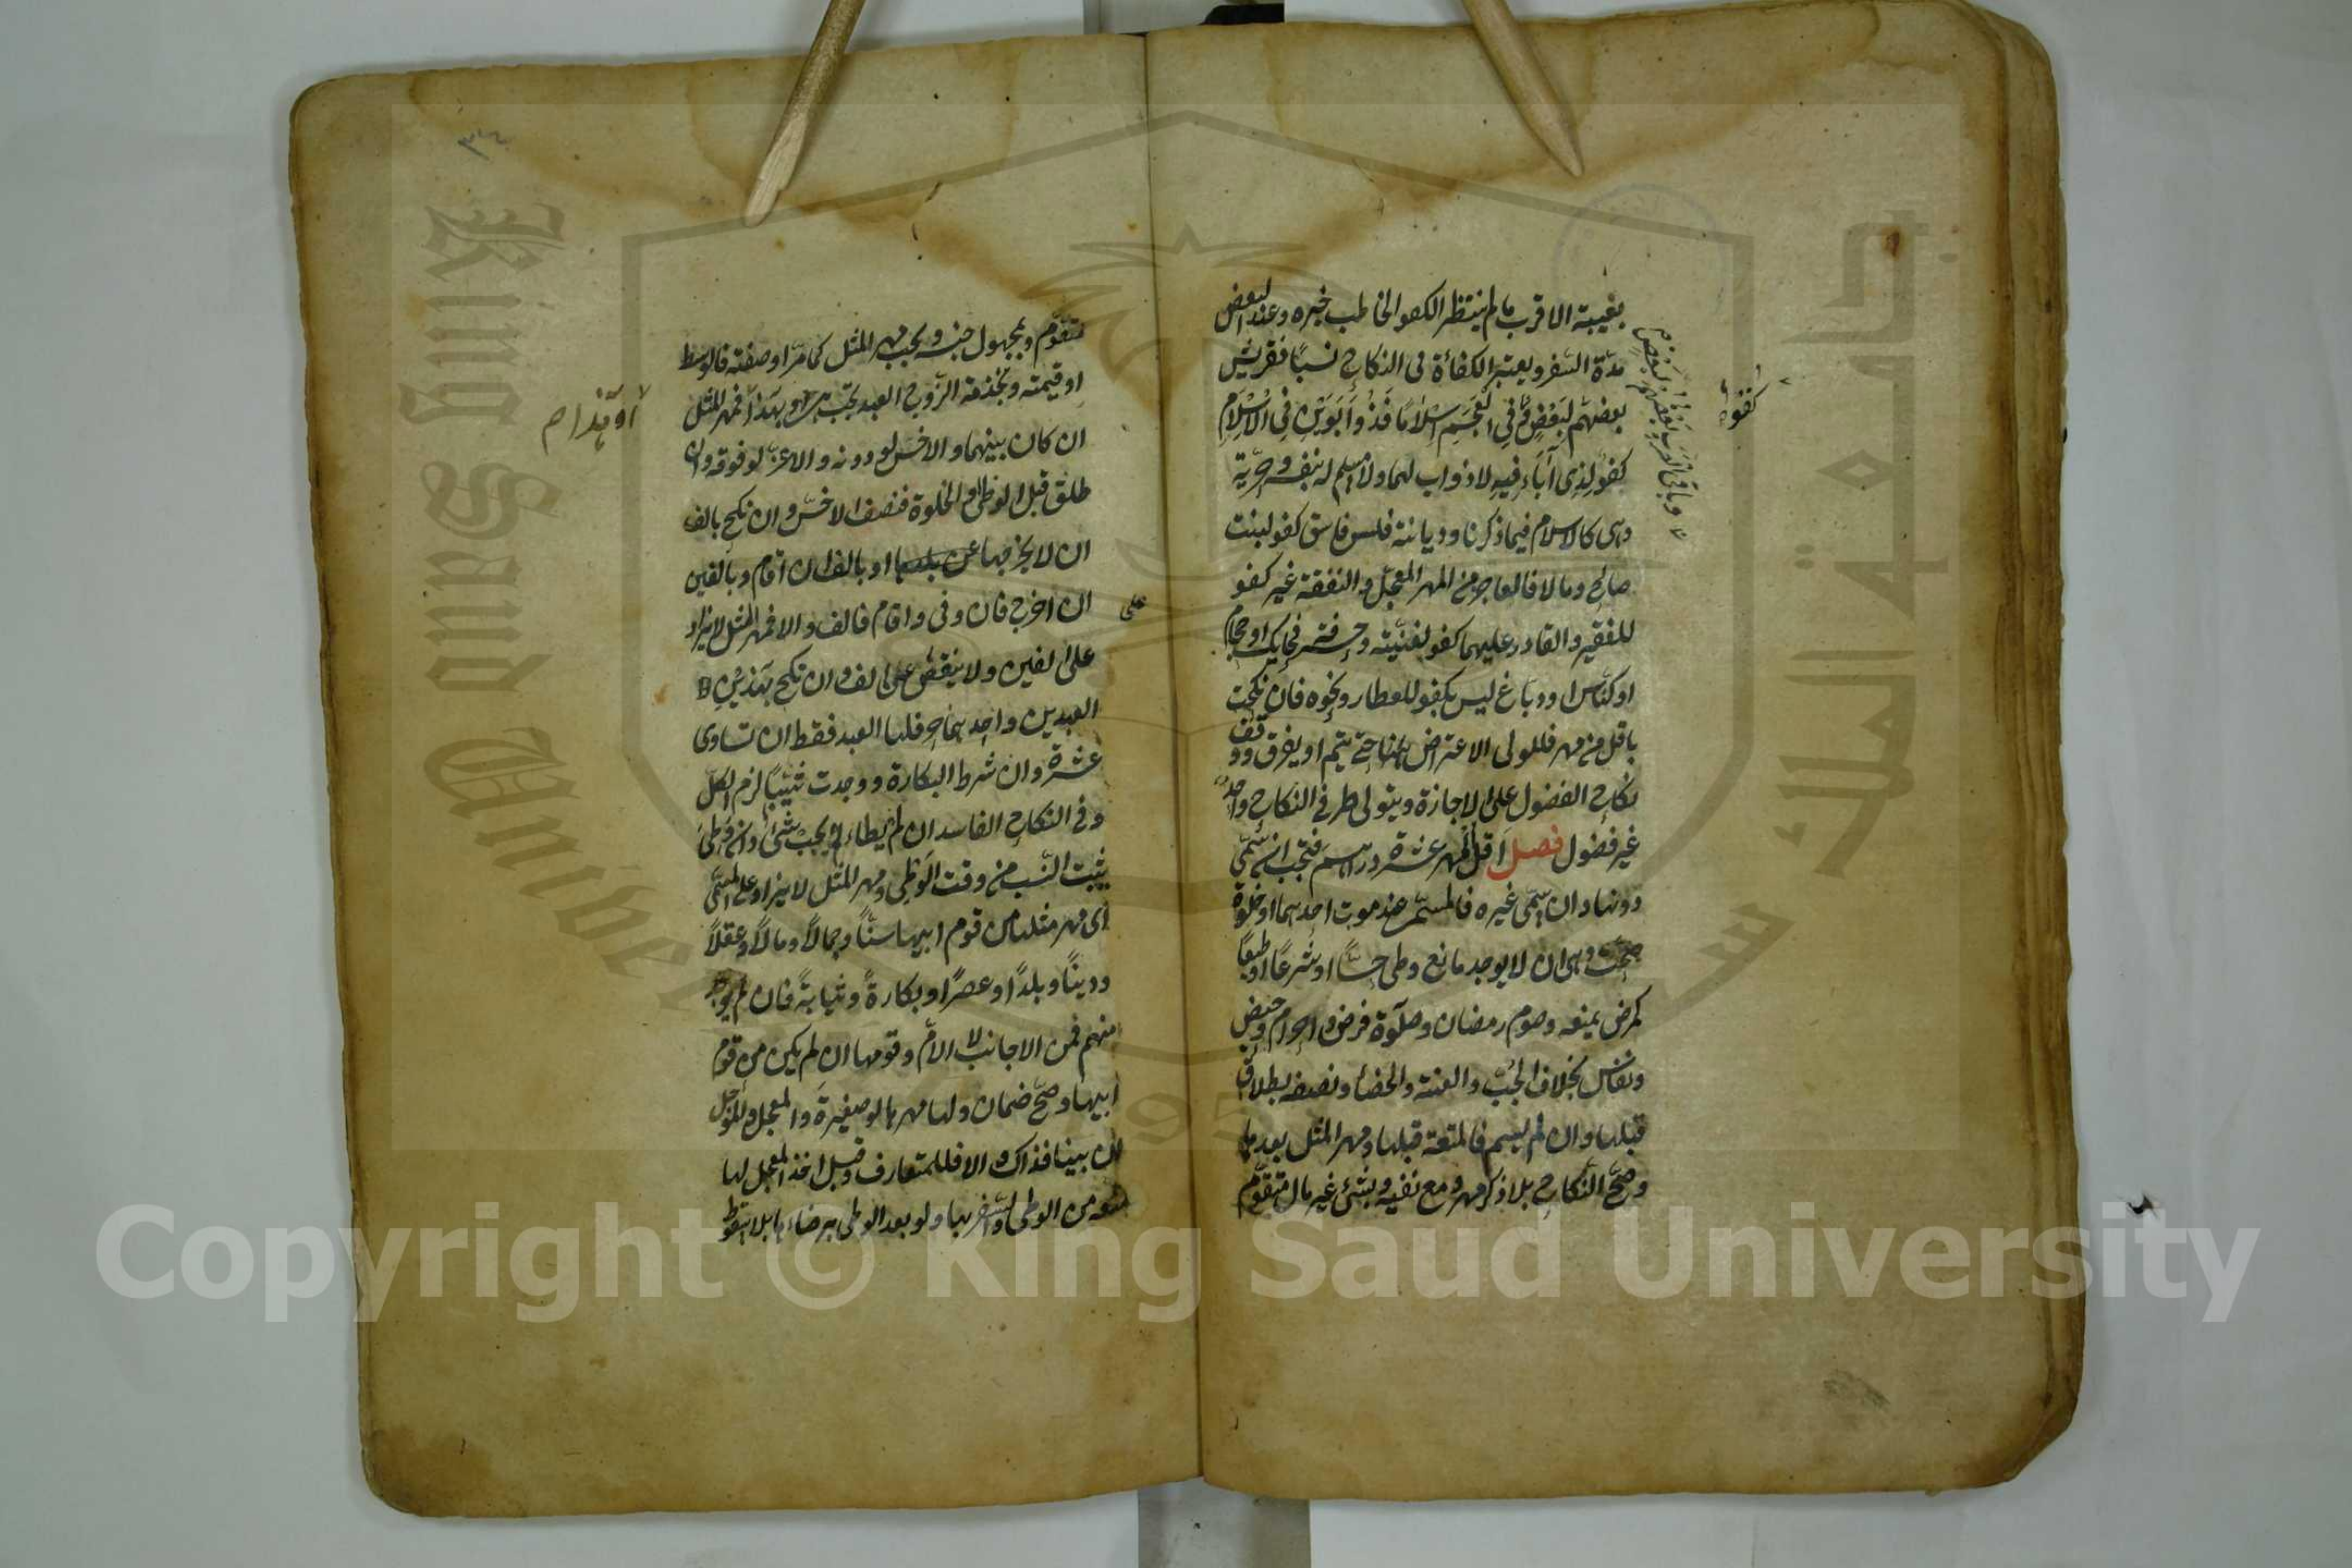 بغيبة الاقرب ما لم ينتظر الكفو الخاطب خبره وعند البعض
مدّة السّفر ويعتبر الكفاءة فى النكاح نسبًا فقريش
بعضهم لبعضٍ وفي العجم اسلامًا فذو ابوين في الاسلام
كفوٌ لذى آباءٍ فيه لا ذو اب لهما ولا مسلم بنفسه وحرية
وهى كالاسلام فيما ذكرنا وديانة فليس فاسق كفو لبنت
صالح ومالا فالعاجز من المهر المعجّل والنفقة غير كفو
للفقير والقادر عليهما كفو لغنيّة وحرفة فحايك او حجام
او كنّاس او دباغ ليس بكفو للعطار ونحوه فان نكحت
باقل من مهر فللولى الاعتراض حتّى يتم او يفرق ووقف
نكاح الفضول على الاجازة ويتولى طرفى النكاح واحد
غير فضول فصل اقل المهر عشرة دراهم فتجب ان سمّى
دونها وان سمّى غيره فالمسمّى عند موت احدهما او خلوة
صحّت وهى ان لا يوجد مانع وطى حسًّا او شرعًا او طبعًا
كمرض يمنعه وصوم رمضان وصلوة فرض واحرام وحيض
ونفاس بخلاف الجُبّ والعنّة والخصاء ونصفه بطلاق
قبلها وان لم يسم فالمتعة قبلها ومهر المثل بعدها
وصحّ النّكاح بلا ذكر مهر ومع نفيه وبشئ غير مال متقوّم
وباقى العرب بعضهم لبعض
كفو
متقوّم وبمجهول جنسه ويجب مهر المثل كما مرّ او صفته فالوسط
او قيمته وبخدمة الزّوج العبد تجب هى وبهذا فمهر المثل
ان كان بينهما والاخسّ لو دونه والاعزّ لو فوقه وان
طلق قبل الوطى والخلوة فنصف الاخسّ وان نكح بالف
ان لا يخرجها او بالف ان اقام وبالفين
ان اخرج فان وفى واقام فالف والا فمهر المثل لا يزاد
على الفين ولا ينقص على الف وان نكح بهذين
العبدين واحدهما حر فلها العبد فقط ان تساوى
عشرة وان شرط البكارة ووجدت ثيّبًا لزم الكلّ
وفى النكاح الفاسد ان لم يطاء لم يجب شئ وان وطئ
يثبت النسب من وقت الوطى ومهر المثل لا يزاد على المسمّى
اى مهر مثلها من قوم ابيها سنًّا وجمالاً ومالاً وعقلاً
ودينًا وبلدًا وعصرًا وبكارةً وثيابةً فان لم يوجد
منهم فمن الاجانب لا الامّ وقومها ان لم يكن من قوم
ابيها وصحّ ضمان وليها مهرها لو صغيرةً والمعجل والمؤجل
ان بينا فذاك والا فللمتعارف وقبل اخذ المعجل لها
منعه من الوطى والسّفر بها ولو بعد الوطى برضاءها بلا سقوط
او بهذا
على
King Saud University
جامعة الملك سعود
1957
Copyright © King Saud University